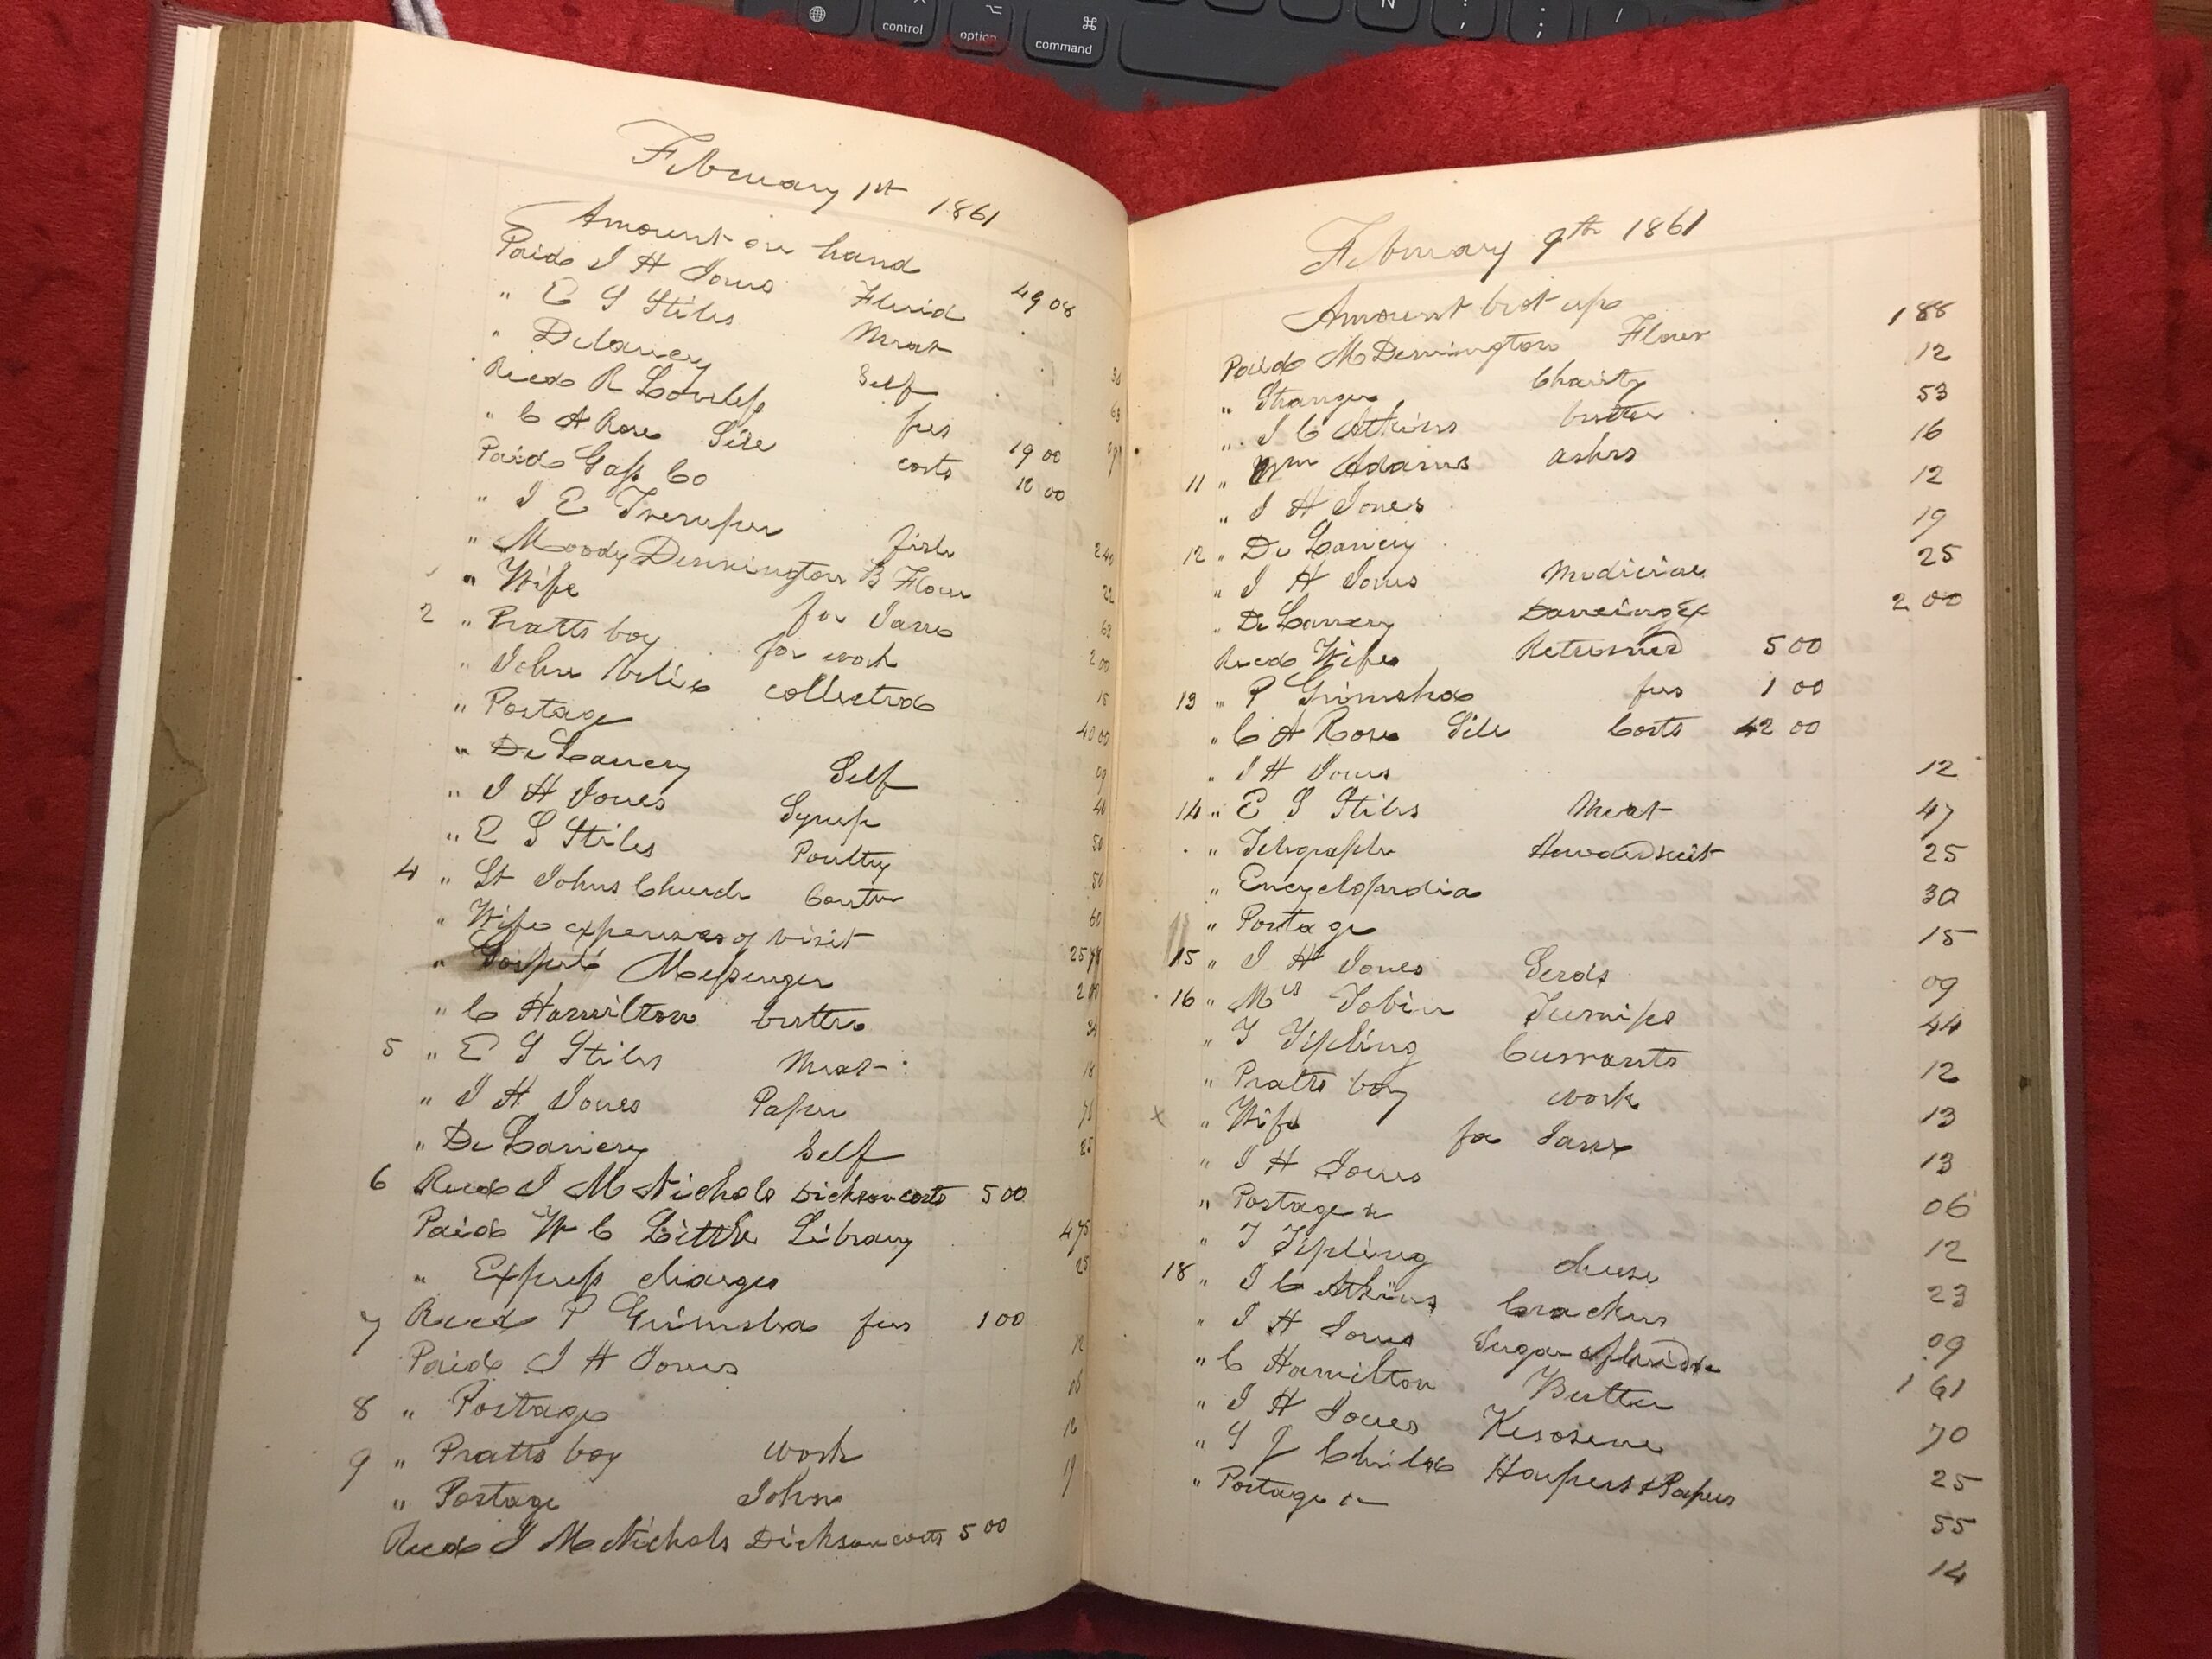 control option command N
February 1st 1861
Amount on hand 49 08
Paid J H Jones Fluid
" E S Stiles Meat 38
" Delancey Self 63
Recd R Loveless fees 19 00
" C A Rose Sile costs 10 00
Paid Gass Co 2 40
" J E fish 22
" Moody Dennington B Flour 62
" Wife for Jane 2 00
2 " Pratts boy for work 15
" John collected 40 00
" Postage 09
" De Lancey Self 40
" J H Jones Syrup 50
" E S Stiles Poultry 50
4 " St Johns Church Contn 60
" Wife expenses of visit 25
" Gospel Messenger 2
" C Hamilton butter
5 " E S Stiles Meat 18
" J H Jones Paper
" De Lancey Self 25
6 Recd J M Nichols Dickson costs 5 00
Paid W C Little Library 4 75
" Express charges 25
7 Recd P Grimsha fees 1 00
Paid J H Jones 12
8 " Postage 16
9 " Pratts boy work 12
" Postage John 19
Recd J M Nichols Dickson costs 5 00
February 9th 1861
Amount brot up 1 88
Paid M Dennington Flour 12
" Stranger Charity 53
" J C Atkins butter 16
11 " Wm Adams ashes 12
" J H Jones 19
12 " De Lancey 25
" J H Jones Medicine 2 00
" De Lancey
Recd Wife Returned 5 00
13 " P Grimsha fees 1 00
" C A Rose Sile Costs 42 00
" J H Jones 12
14 " E S Stiles Meat 47
" Telegraph Howard suit 25
" Encyclopedia 30
" Postage 15
15 " J H Jones Seeds 09
16 " Mrs Tobin Turnips 44
" T Tipling Currants 12
" Pratts boy work 13
x " Wife for Jane 13
" J H Jones 06
" Postage 12
" T Tipling cheese 23
18 " J C Atkins Crackers 09
" J H Jones Sugar & fluid 1 61
" C Hamilton Butter 70
" J H Jones Kerosene 25
" S J Childs Harpers & Papers 55
" Postage 14